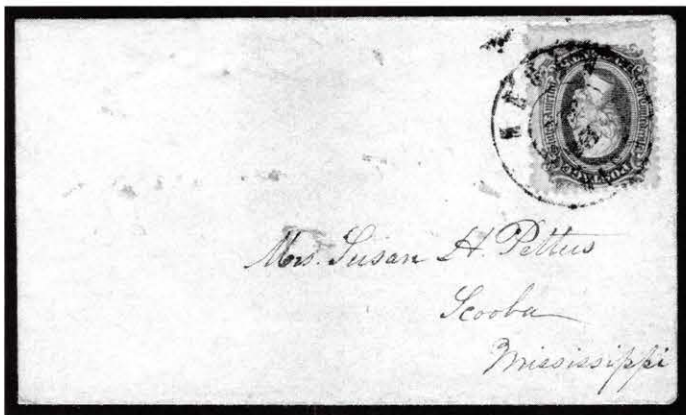 POSTAGE
Mrs. Susan H. Pettus
Scooba
Mississippi